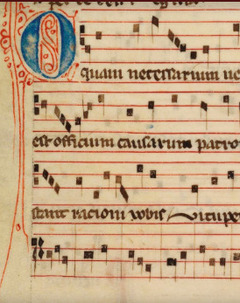 O quam necessarium ue
est officium causarum patro
stant racioni vobis Vitupe